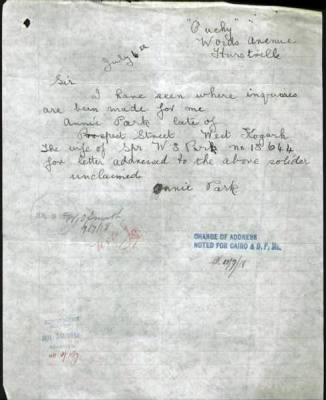 "Puchy"
Woids Avenue
Hurstville
July 6th
Sir
I have seen where inquireies
are been made for me
Annie Park late of
Prospect Street West Kogark
The wife of Spr W S Park no 13644
for letter addressed to the above solider
unclaimed
Annie Park
9/7/18
CHANGE OF ADDRESS
NOTED FOR CAIRO & D.P. Me.